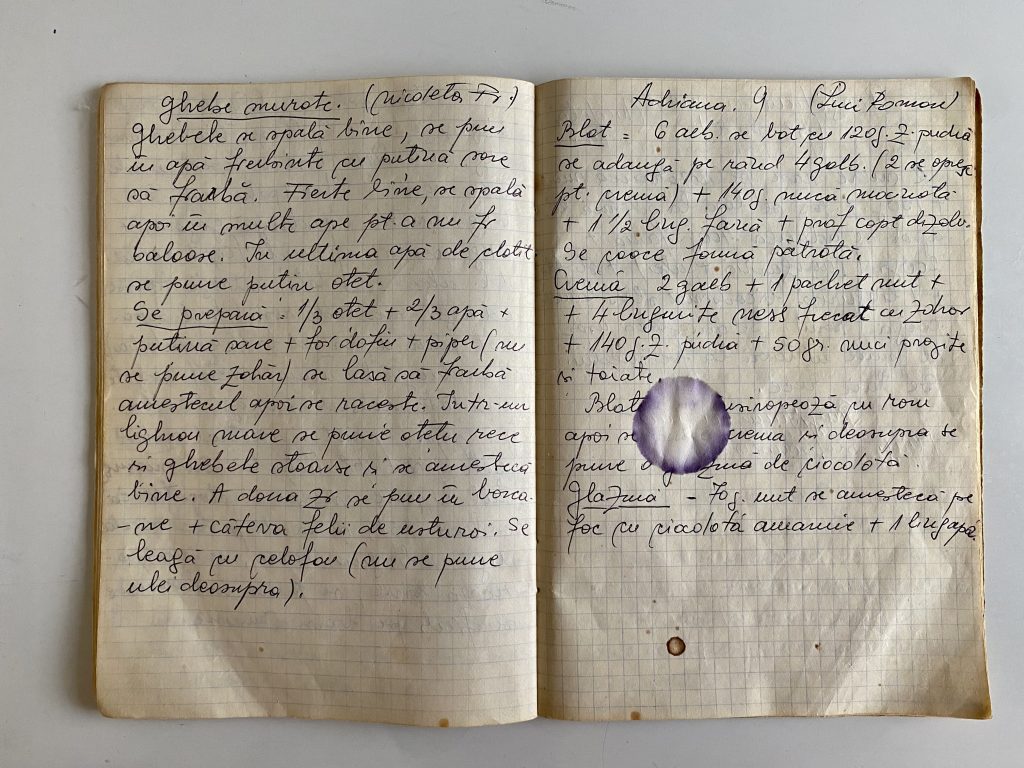 ghebe murate. (Nicoleta Fr.)
Ghebele se spală bine, se pun
în apă fierbinte cu puțină sare
să fiarbă. Fierte bine, se spală
apoi în multe ape pt. a nu fi
baloase. În ultima apă de clătit
se pune puțin oțet.
Se prepară: 1/3 oțet + 2/3 apă +
puțină sare + foi dafin + piper (nu
se pune zahăr) se lasă să fiarbă
amestecul apoi se răcește. Într-un
lighean mare se pune oțetu rece
și ghebele stoarse și se amestecă
bine. A doua zi se pun în borca-
-ne + câteva felii de usturoi. Se
leagă cu celofan (nu se pune
ulei deasupra).
Adriana. 9 (Luci Roman)
Blat = 6 alb. se bat cu 120g. z. pudră
se adaugă pe rând 4 galb. (2 se opresc
pt. cremă) + 140g. nucă măcinată
+ 1 1/2 ling. faină + praf copt dizolv.
Se coace formă pătrată.
Cremă 2 galb + 1 pachet unt +
+ 4 lingurite ness frecat cu zahăr
+ 140g. z. pudră + 50gr. nuci prăjite
și tăiate.
Blat însiropează cu rom
apoi se crema și deasupra se
pune o glazură de ciocolată.
Glazură - 70g. unt se amestecă pe
foc cu ciocolată amăruie + 1 ling apă.